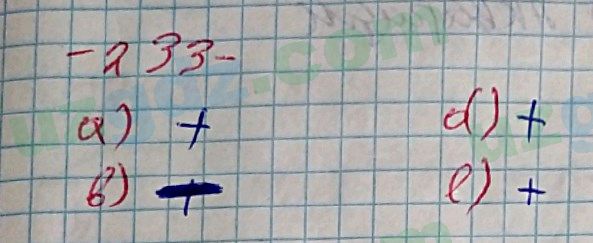 -233-
a) + d) +
b) + e) +